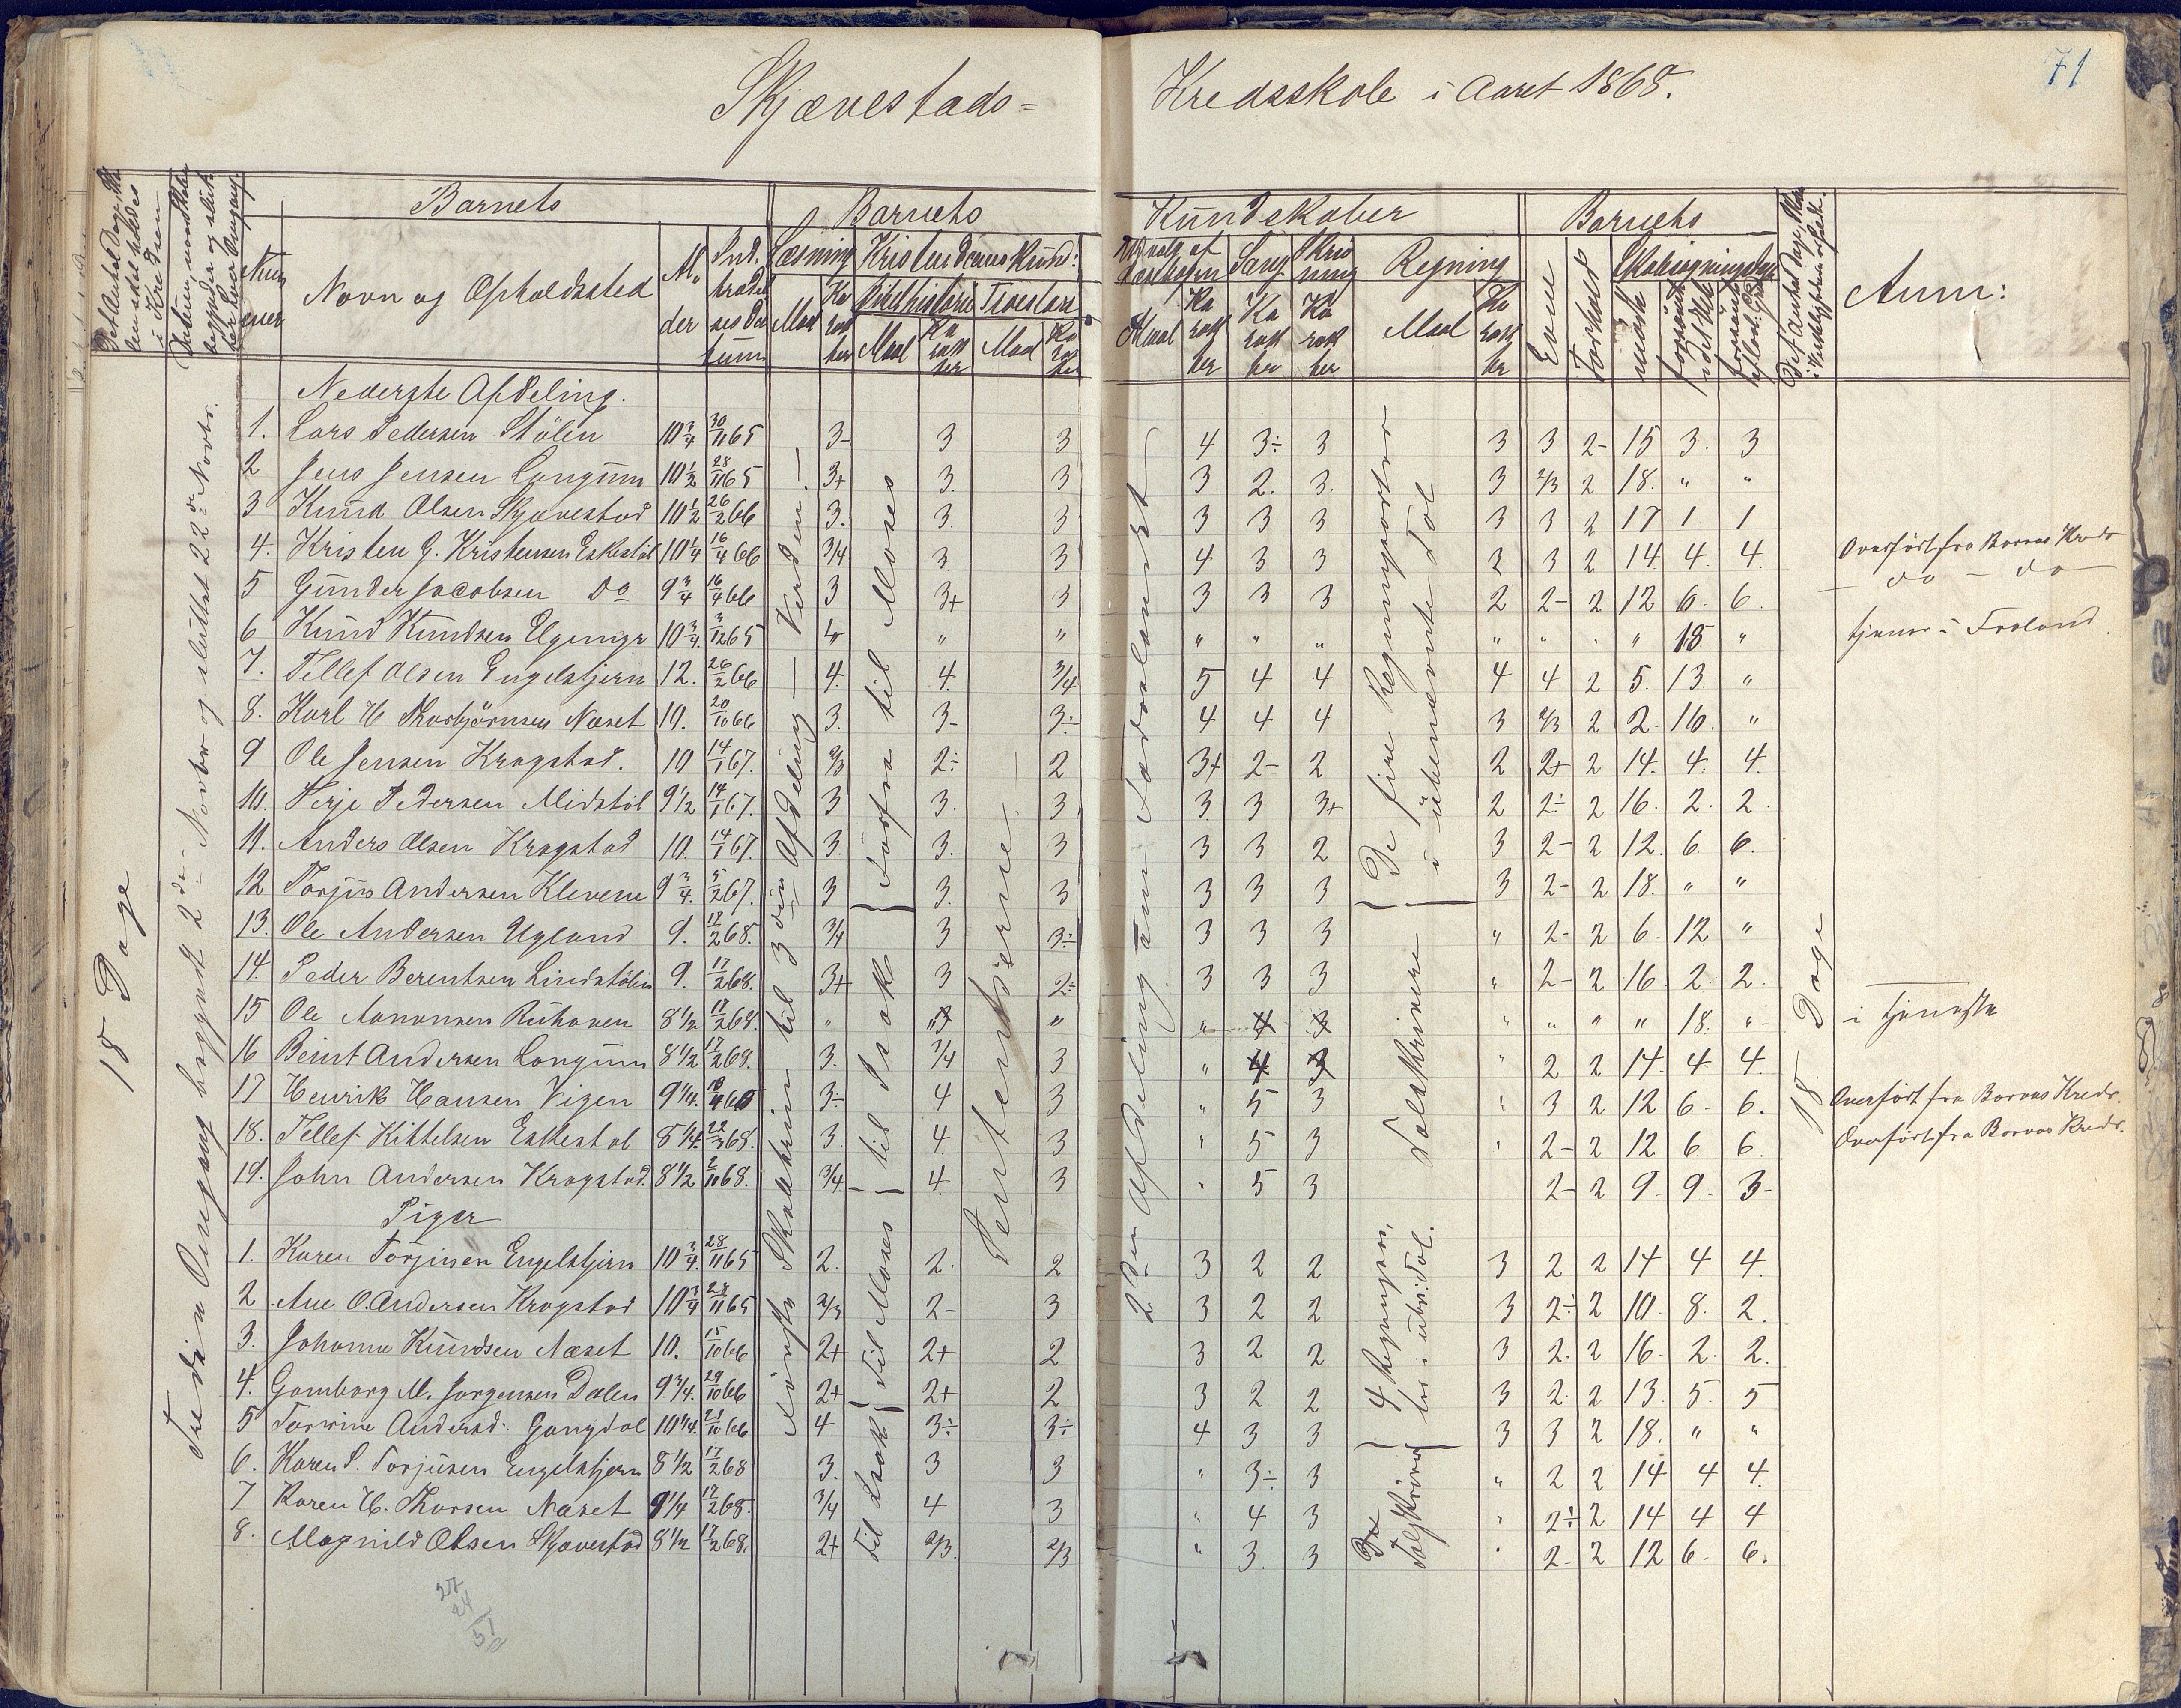 71
Skjævestads= Kredsskole i Aaret 1868.
Barnets Barnets Kundskaber Barnets
Navn og Opholdssted Læsning Kristendomskund: Sang Regning Evne Forhold Anm:
Maal Maal Maal Maal Maal
Nederste Afdeling.
1. Lars Pedersen Stölen 10 3/4 30/11 65 3- 3 3 4 3÷ 3 3 3 2- 15 3. 3
2 Jens Jensen Longum 10 1/2 28/11 65 3+ 3. 3 3 2. 3. 3 2/3 2 18. " "
3 Knud Olsen Skjævestad 10 1/2 26/2 66 3. 3. 3 3 3 3 3 3 2 17 1. 1
4. Kristen G. Kristensen Eskestöl 10 1/4 16/4 66 3/4 3 3 4 3 3 3 3 2 14. 4. 4. Overfört fra Borøens Kreds
5 Gunder Jacobsen Do 9 3/4 16/4 66 3 3+ 3 3 3 3 2 2- 2 12 6. 6. — do — do —
6 Knud Knudsen 10 3/4 3/12 65 " " " " " " " " " 18 " tjener i Froland.
7. Tellef Olsen Engelstjern 12. 26/2 66 4. 4. 3/4 5 4 4 4 4 2 5. 13 "
8. Karl H Thorbjörnsen Næset 10. 20/10 66 3. 3- 3÷ 4 4 4 3 2/3 2 2. 16. "
9 Ole Jensen Krogstad. 10 14/1 67. 2/3 2÷ 2 3+ 2- 2 2 2+ 2 14. 4. 4.
10. Terje Pedersen Midstöl 9 1/2 14/1 67. 3 3. 3 3 3 3+ 2 2÷ 2 16. 2. 2.
11. Anders Olsen Krogstad 10. 14/1 67. 3. 3. 3 3 3 2 3 2- 2 12. 6. 6.
12 Torjus Andersen Klevene 9 3/4. 5/2 67. 3 3. 3 3 3 3 3 2- 2 18. " "
13. Ole Andersen Ugland 9. 17/2 68. 3/4 3 3÷ 3 3 3 " 2- 2 6. 12 "
14. Peder Berentsen Lindstölen 9. 17/2 68. 3+ 3 2÷ 3 3 3 " 2- 2 16. 2. 2.
15 Ole Aanonsen 8 1/2 17/2 68. " " " " 4 3 " " " " 18. " i tjeneste
16 Beint Andersen Longum 8 1/2 17/2 68. 3. 3/4 3 " 4 3 " 2 2 14. 4 4.
17 Henrik Hansen Vigen 9 1/4. 3÷ 4 3 " 5 3 " 3 2 12 6- 6. Overfört fra Borøens Kreds.
18. Tellef Kittelsen Eskestøl 8 1/4. 22/3 68. 3. 4. 3 " 5 3 " 2- 2 12 6 6. Overfört fra Borøens Kreds.
19. John Andersen Krogstad. 8 1/2 2/11 68. 3/4. 4. 3 " 5 3 2- 2 9. 9. 3-
Piger
1. Karen Torjusen Engelstjern 10 3/4. 28/11 65 2. 2. 2 3 2 2 3 2 2 14 4 4.
2 Ane O. Andersen Krogstad 10 3/4 28/11 65 2/3 2- 3 3 2 2 3 2÷ 2 10. 8. 2.
3. Johanne Knudsen Næset 10. 15/10 66 2+ 2+ 2 3 2 2 3 2. 2 16. 2. 2.
4. Gomborg M. Jorgensen Dalen 9 3/4. 29/10 66 2+ 2+ 2 3 2 2 3 2. 2 13. 5. 5
5 Torine Andersd: Gangdal 10 1/4. 21/10 66 4 3÷ 3÷ 4 3 3 3 3 2 18. " "
6. Karen P. Torjusen Engelstjern 8 1/2 17/2 68 3. 3 3 " 3÷ 3 " 2 2 14 4 4.
7 Karen H. Thorsen Næset 9 1/4 17/2 68. 3/4 4 3 " 4 3 " 2÷ 2 14 4 4
8. Magnild Olsen Skjævestad 8 1/2 17/2 68. 2+ 2/3. 2/3 " 3. 3 " 2- 2 12 6- 6.
18 Dage
Tredie Omgang begyndt 2den Novbr og sluttet 22de Novbr.
Förste Skoletrin til 3die Afdeling — Verden. —
Forfra til Moses
til Isak
til Moses
til Isak
Pensterne
2den Afdeling
De fire Regningsarter i ubenævnte Tal
Talskrivere
4 Regningsar. i ube: Tal.
Talskrivere
18 Dage
27
24
51